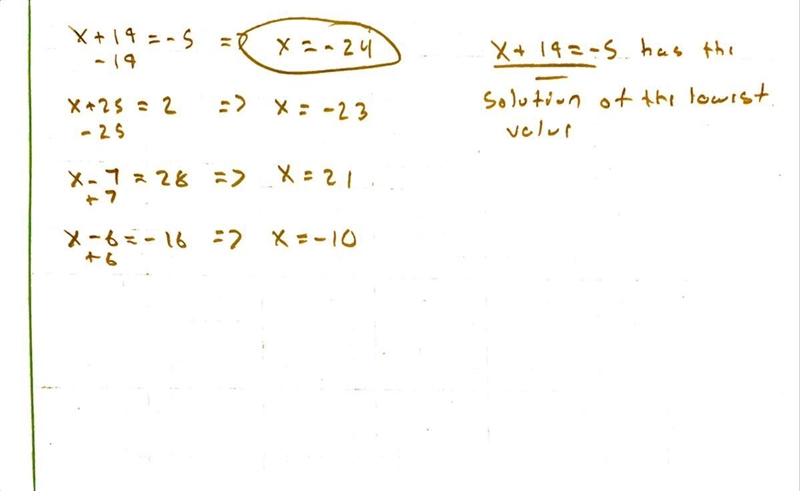 x+19=-5 => x=-24
-19
x+25=2 => x=-23
-25
x-7=28 => x=21.
+7
x-6=-16 => x=-10
+6
x+19=-5 has the
solution of the lowest
value